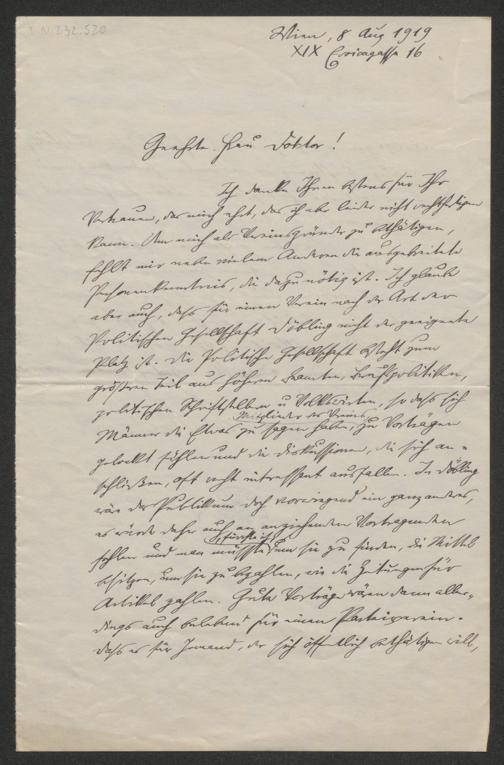 I.N.232.520
Wien, 8 Aug 1919
XIX Ericagasse 16
Geehrte Frau Doktor!
Ich danke Ihnen bestens für Ihr
Vertrauen, das mich ehrt, das ich aber leider nicht rechtfertigen
kann. Um mich als Vereinsgründer zu bethätigen,
fehlt mir neben vielem Anderen die ausgebreitete
Personenkenntnis, die dazu nötig ist. Ich glaube
aber auch, dass für einen Verein nach der Art der
Politischen Gesellschaft Döbling nicht der geeignete
Platz ist. Die Politische Gesellschaft besteht zum
größten Teil aus höhern Beamten, Berufspolitikern,
politischen Schriftstellern u Volkswirten, so dass sich
Mitglieder des Vereins
Männer die Etwas zu sagen haben, zu Vorträgen
gelockt fühlen und die Diskussionen, die sich an-
schließen, oft recht interessant ausfallen. In Döbling
wäre das Publikum doch vorwiegend ein ganz anderes,
es würde daher auch an anziehenden Vortragenden
fehlen und man müsste, um sie zu finden, die Mittel
besitzen, um sie zu bezahlen, wie die Zeitungen für
Artikel zahlen. Gute Vorträge wären dann aller-
dings auch belebend für einen Parteiverein.
Dass es für Jemand, der sich öffentlich bethätigen will,